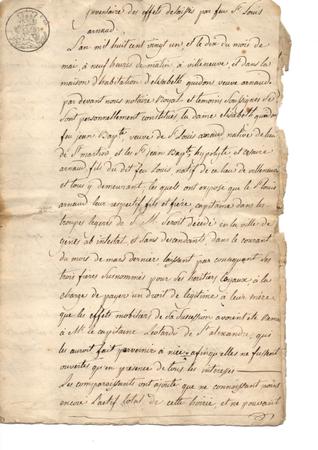 Inventaire des effets delaissés par feu Sr. Louis
arnaud.
L'an mil huit cent vingt un, et le dix du mois de
mai, à neuf heures de matin, à villeneuve, et dans la
maison d'habitation d'elisabeth quidons veuve arnaud
par devant nous notaire Royal, et temoins soussignés
sont personnellement constitués la dame elisabeth
feu jean Bapte. veuve de Sr. Louis arnaud native de lieu
de St. martin, et les Srs. jean Bapte. hypolyte et cesaire
arnaud fils du dit feu Louis natif de ce lieu de villeneuve
et tous y demeurant, les quels ont exposé que le Sr. Louis
arnaud leur respectif fils et frère, capitaine dans les
troupes legeres de S. M. seroit decedé en la ville de
genes ab intestat, et sans descendants, dans le courant
du mois de mars dernier laissant par consequent ses
trois freres susnommés pour ses heritiers legaux à la
charge de payer un droit de legitime à leur mere
que les effets mobiliers de sa succession avoient été
à Mr. le capitaine Leotardi de St. alexandre, qui
les auroit fait parvenir à nice afin qu'elles ne fussent
ouvertes qu'en presence de tous les interessés
Les comparoissants ont ajouté que ne connoissant point
encore l'actif total de cette hoirie, et ne pouvant